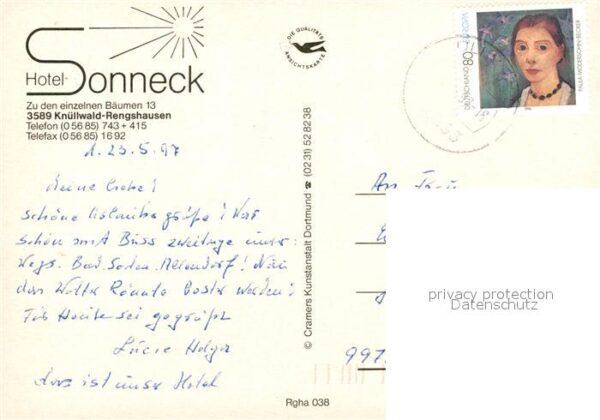 DIE QUALITÄTS
ANSICHTSKARTE
Hotel Sonneck
Zu den einzelnen Bäumen 13
3589 Knüllwald-Rengshausen
Telefon (0 56 85) 743 + 415
Telefax (0 56 85) 16 92
d. 23.5.97
Meine Liebe!
Schöne Urlaubsgrüße! War
schon mit Buss zweitage unter-
wegs. Bad. Soden. Allendorf!
das Wetter Könnte besser werden!
Für Heute sei gegrüßt
Lucie Holga
das ist unser Hotel
© Cramers Kunstanstalt Dortmund ☎ (02 31) 52 82 38
Rgha 038
DEUTSCHLAND 80 EUROPA
PAULA MODERSOHN-BECKER
An Frau
997
privacy protection
Datenschutz